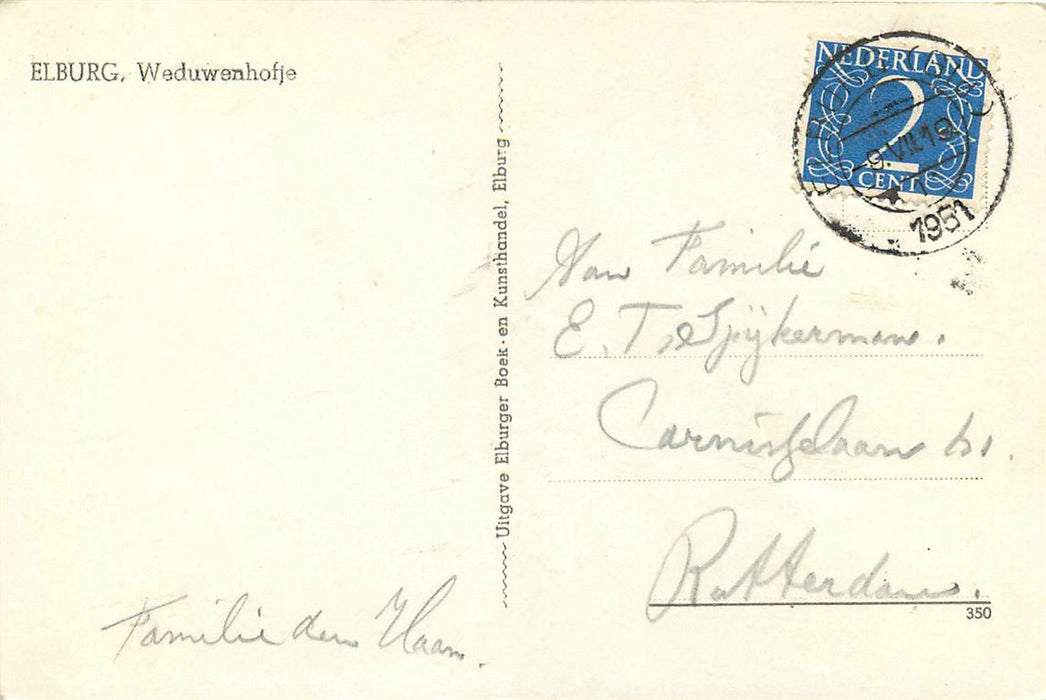 ELBURG, Weduwenhofje
NEDERLAND
2
CENT
9.VII.19
1951
Uitgave Elburger Boek- en Kunsthandel, Elburg
Aan Familie
E. T. Spijkerman.
Rotterdam.
350
Familie den Haan.